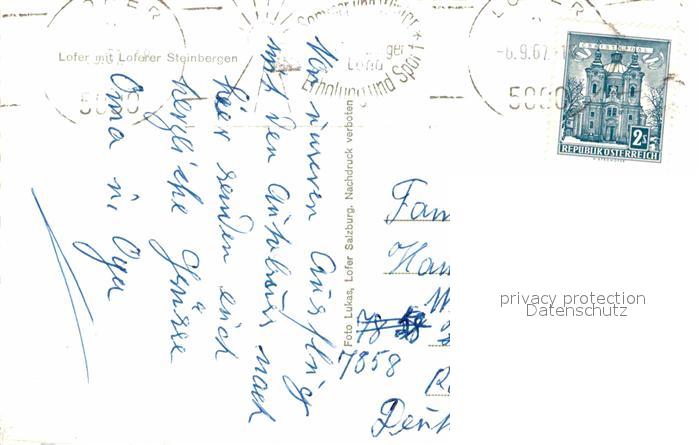 Lofer mit Loferer Steinbergen
Von unseren Ausflug
mit den Autobus nach
hier senden euch
herzliche Grüsse
Oma u. Opa
Foto Lukas, Lofer Salzburg. Nachdruck verboten
LOFER
5090
Sommer und Winter
Erholung und Sport
LOFER
-6.9.67
5090
CHRISTKINDL
2S
REPUBLIK ÖSTERREICH
Fam
Han
7858
Deut
privacy protection
Datenschutz